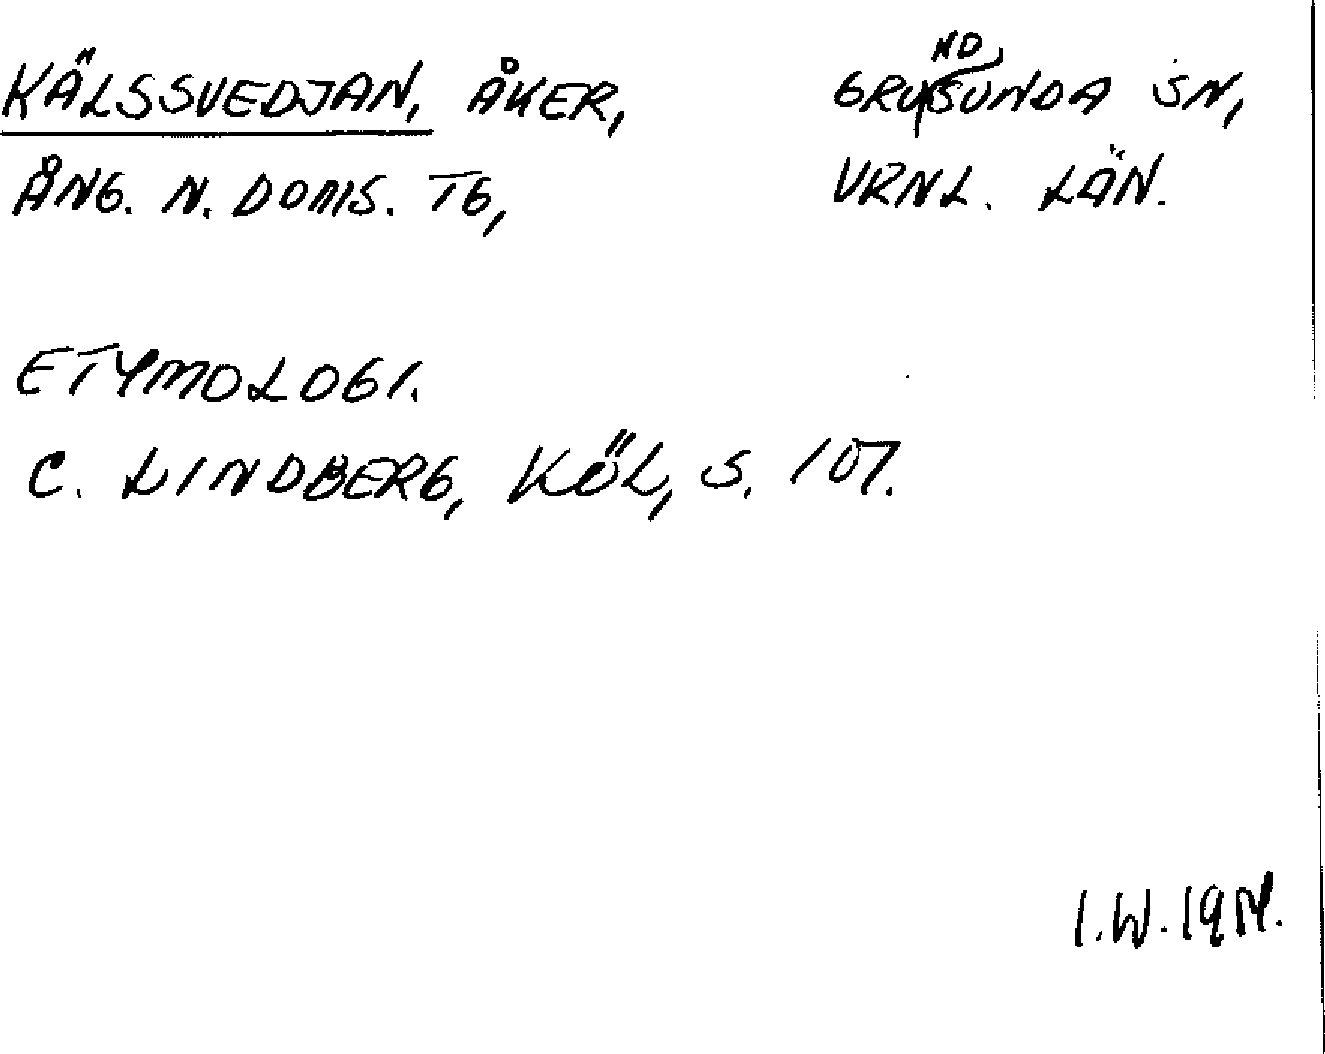 KÄLSSVEDJAN, ÅKER, GRUNDSUNDA SN,
ÅNG. N. DOMS. TG, VRNL. LÄN.
ETYMOLOGI.
C. LINDBERG, KÖL, S. 107.
I.W.